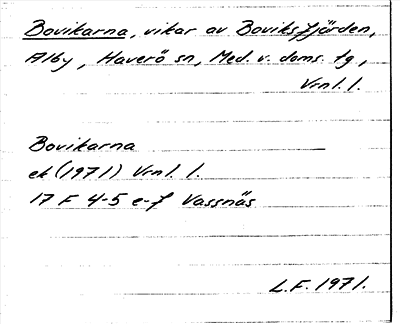 Bovikarna, vikar av Boviksfjärden,
Alby, Haverö sn, Med. v. doms. tg,
Vrnl. l.
Bovikarna
ek (1971) Vrnl. l.
17 F 4-5 e-f Vassnäs
L.F. 1971.